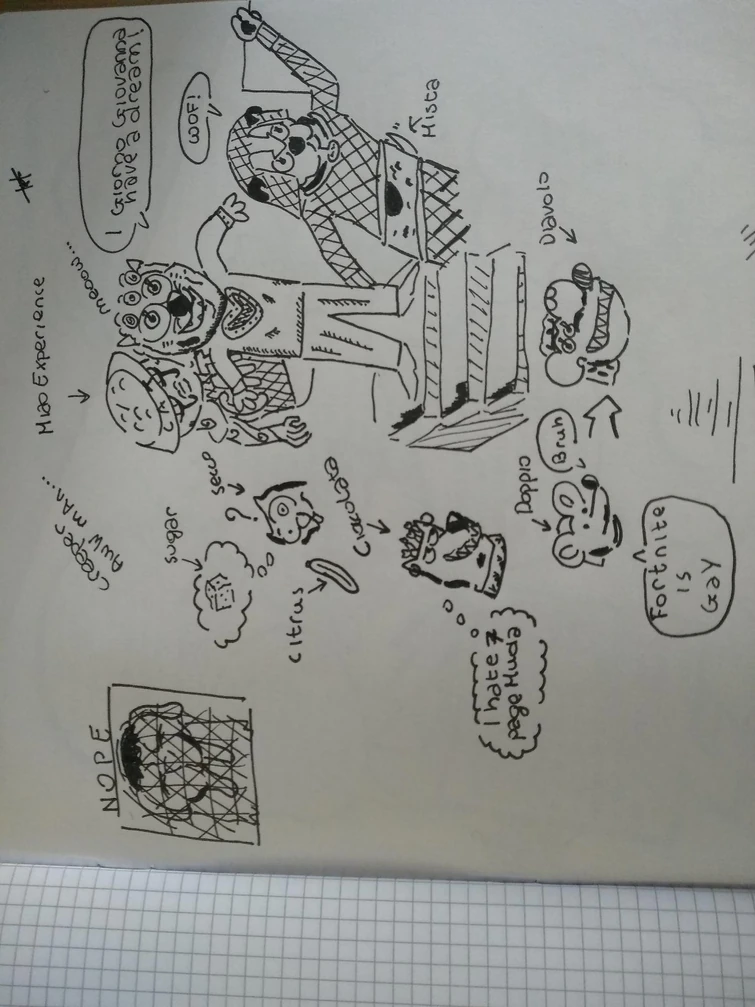 NOPE
Creeper
AWW MAn...
Miao Experience
meoow...
I Giorno Giovanna
have a dream!
WOF!
Mista
sugar
secco
?
citrus
Cioccolata
I hate 7
page Muda
Doppio
Bruh
Diavolo
Fortnite
is
Gay